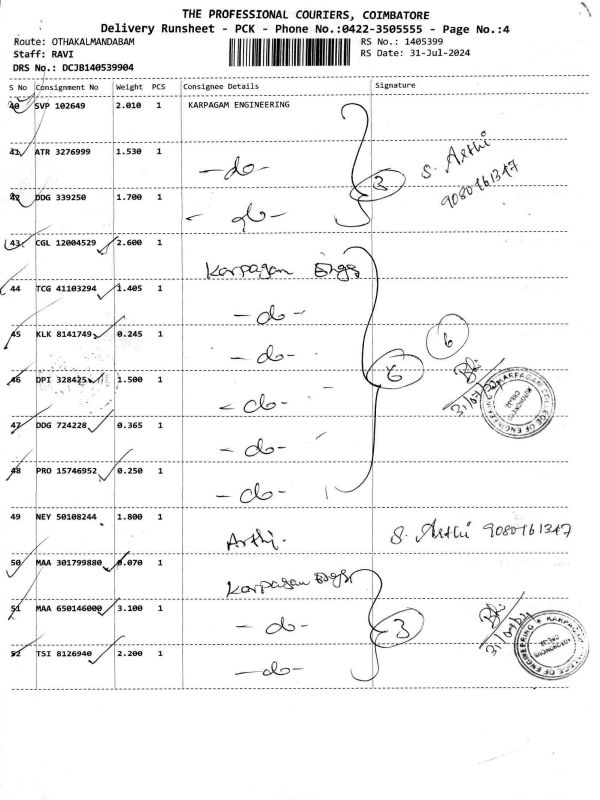 THE PROFESSIONAL COURIERS, COIMBATORE
Delivery Runsheet - PCK - Phone No.:0422-3505555 - Page No.:4
Route: OTHAKALMANDABAM RS No.: 1405399
Staff: RAVI RS Date: 31-Jul-2024
DRS No.: DCJB140539904
S No Consignment No Weight PCS Consignee Details Signature
40 SVP 102649 2.010 1 KARPAGAM ENGINEERING
41 ATR 3276999 1.530 1 -do- 3 S. Arthi
9080161347
42 DDG 339250 1.700 1 - do -
43 CGL 12004529 2.600 1 Karpagan Engg
44 TCG 41103294 1.405 1 - do -
45 KLK 8141749 0.245 1 - do - 6
46 DPI 328425 1.500 1 - do - 6 31/07/24 KARPAGAM COLLEGE OF ENGINEERING
47 DDG 724228 0.365 1 - do -
48 PRO 15746952 0.250 1 - do -
49 NEY 50108244 1.800 1 Arthi. S. Arthi 9080161347
50 MAA 301799880 0.070 1 Karpagan Engg
51 MAA 650146000 3.100 1 - do - 3 31/07/24 KARPAGAM COLLEGE OF ENGINEERING
52 TSI 8126940 2.200 1 -do-